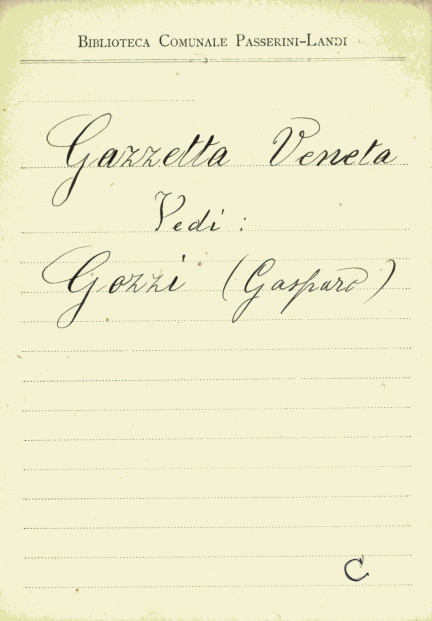 Biblioteca Comunale Passerini-Landi
Gazzetta Veneta
Vedi:
Gozzi (Gasparo)
C